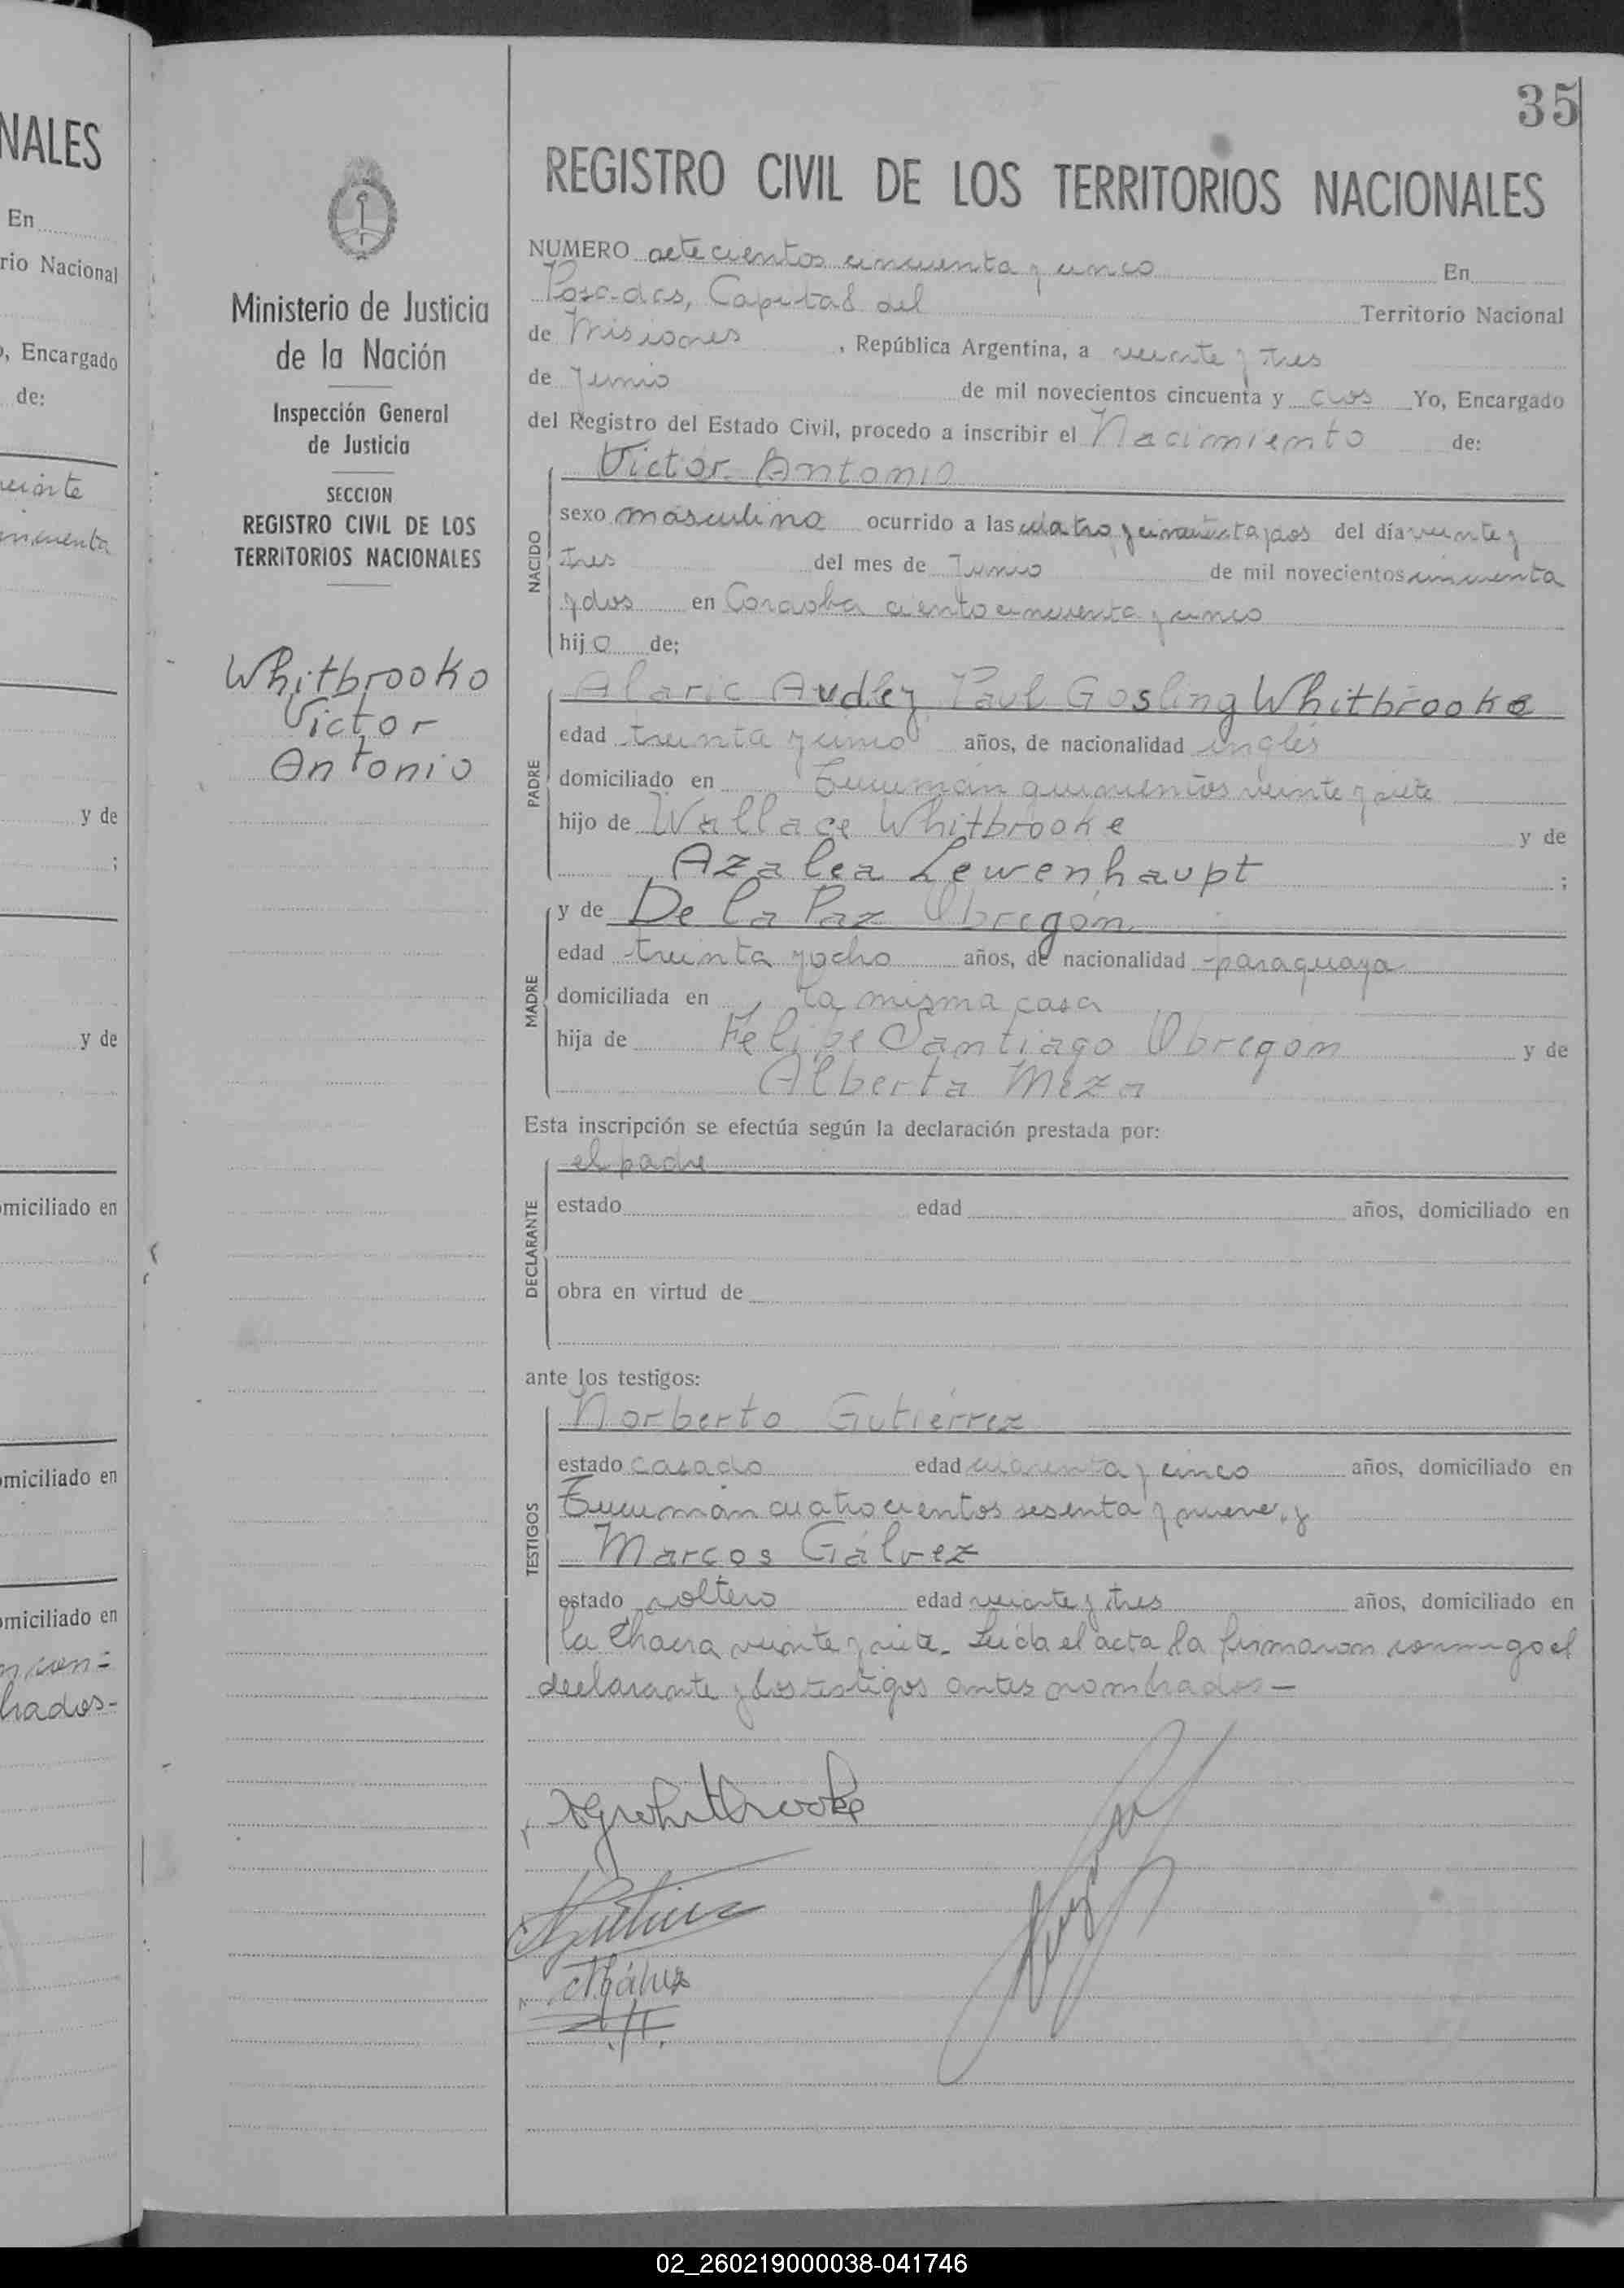 NALES
En
rio Nacional
, Encargado
de:
y de
;
y de
omiciliado en
omiciliado en
omiciliado en
35
Ministerio de Justicia
de la Nación
Inspección General
de Justicia
SECCION
REGISTRO CIVIL DE LOS
TERRITORIOS NACIONALES
Whitbrooke
Victor
Antonio
REGISTRO CIVIL DE LOS TERRITORIOS NACIONALES
NUMERO setecientos cincuenta y cinco En
Posadas, Capital del Territorio Nacional
de Misiones, República Argentina, a veinte y tres
de Junio de mil novecientos cincuenta y dos Yo, Encargado
del Registro del Estado Civil, procedo a inscribir el Nacimiento de:
Victor Antonio
NACIDO
sexo masculino ocurrido a las cuatro y cincuenta y dos del día veinte y
tres del mes de Junio de mil novecientos cincuenta
y dos en Cordoba ciento cincuenta y cinco
hijo de;
Alaric Audley Paul Gosling Whitbrooke
PADRE
edad treinta y cinco años, de nacionalidad inglés
domiciliado en Tucumán quinientos veinte y siete
hijo de Wallace Whitbrooke y de
Azalea Lewenhaupt ;
y de De la Paz Obregón
MADRE
edad treinta y ocho años, de nacionalidad paraguaya
domiciliada en la misma casa
hija de Felipe Santiago Obregon y de
Alberta Meza
Esta inscripción se efectúa según la declaración prestada por:
el padre
DECLARANTE
estado edad años, domiciliado en
obra en virtud de
ante los testigos:
Norberto Gutiérrez
TESTIGOS
estado casado edad cuarenta y cinco años, domiciliado en
Tucumán cuatrocientos sesenta y nueve, y
Marcos Gálvez
estado soltero edad veinte y tres años, domiciliado en
la Chacra veinte y siete. Leída el acta la firmaron conmigo el
declarante y los testigos antes nombrados—
02_260219000038-041746